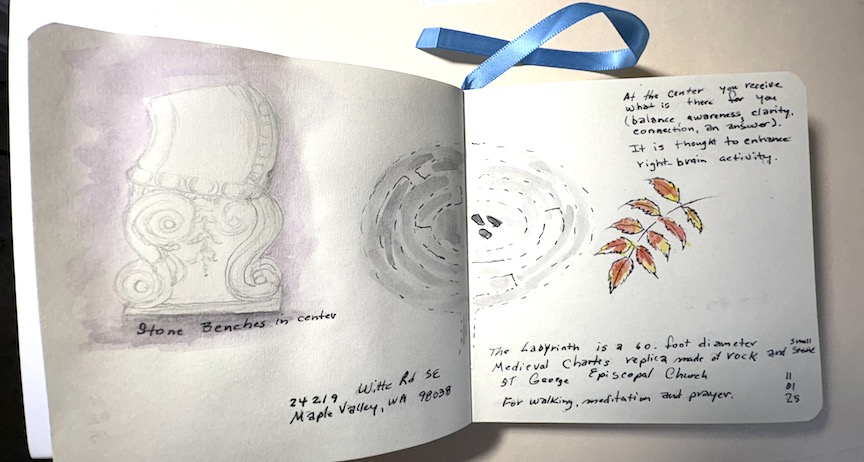 Stone Benches in center
24219 Witte Rd SE
Maple Valley, WA 98038
At the center you receive
what is there for you
(balance, awareness, clarity,
connection, an answer).
It is thought to enhance
right-brain activity.
The Labyrinth is a 60. foot diameter
Medieval Chartes replica made of rock and small stone
ST George Episcopal Church
For walking, meditation and prayer.
11
01
25